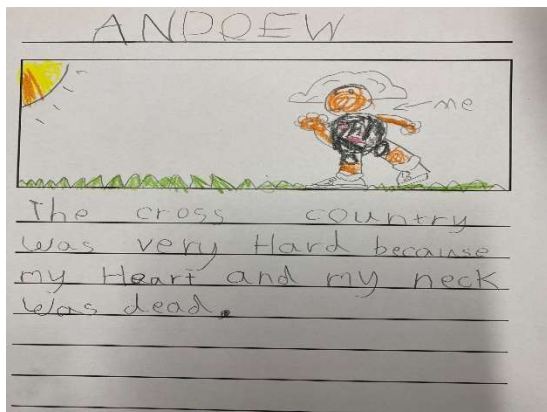 ANDREW
me
The cross country
was very Hard because
my Heart and my neck
was dead.